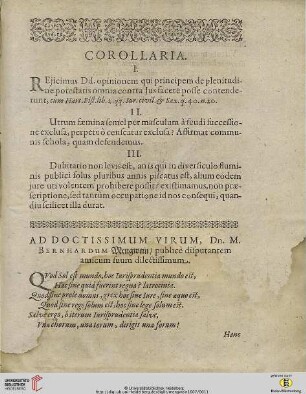 COROLLARIA.
I.
REjicimus Dd. opinionem qui principem de plenitudi-
ne potestatis omnia contra Jus facere posse contende-
runt, cum
II.
Utrum femina semel per masculum à feudi successio-
ne exclusa, perpetuò censeatur exclusa? Affirmat commu-
nis schola, quam defendemus.
III.
Dubitatio non levis est, an is qui in diverticulo flumi-
nis publici solus pluribus annis piscatus est, alium eodem
jure uti volentem prohibere possit? existimamus, non præ-
scriptione, sed tantùm occupatione id nos consequi, quam-
diu scilicet illa durat.
AD DOCTISSIMUM VIRUM, Dn. M.
BERNHARDUM publicè disputantem
amicum suum dilectissimum.
QVod Sol est mundo, hoc Iurisprudentia mundo est,
Hæc sine quid fuerint regna? latrocinia.
Quod sine prole domus, grex hoc sine jure, sine æquo est,
Quod sine rege solum est, hoc sine lege solum est.
Salve ergo, ô iterum Iurisprudentia salve,
Una chorum, una torum, dirigis una forum!
Hanc
UNIVERSITÄTS-
BIBLIOTHEK
HEIDELBERG
© Universitätsbibliothek Heidelberg